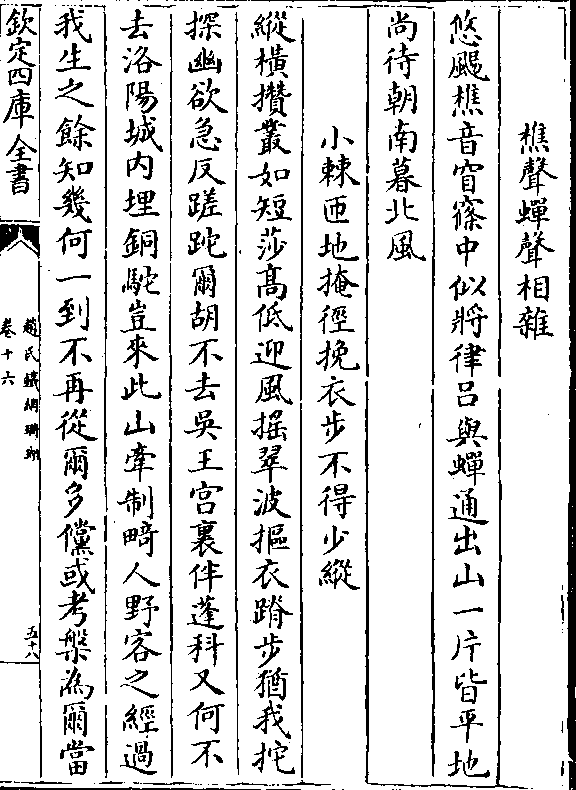 樵聲蟬聲相雜
悠颺樵音窅窱中似將律呂與蟬通出山一片皆平地
尚待朝南暮北風
小棘匝地掩徑挽衣步不得少縱
縱橫攢叢如短莎高低迎風搖翠波摳衣蹐步猶我拕
探幽欲急反蹉跎爾胡不去吳王宮裏伴蓬科又何不
去洛陽城內埋銅駝豈來此山牽制畸人野客之經過
我生之餘知幾何一到不再從爾多儻或考槃為爾當
欽定四庫全書
趙氏鐵網珊瑚
卷十六
五十八